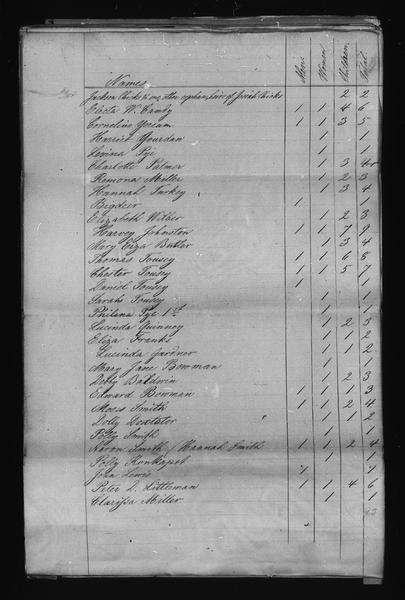 Names Men Women Children Total
Jackson Chicks & one other orphan heirs of Josiah Chicks 2 2
Electa W. Candy 1 1 4 6
Cornelius Yocum 1 1 3 5
Harriet Jourdan 1 1
Lavina Pye 1 1
Charlotte Palmer 1 3 4
Remona Miller 1 2 3
Hannah Turkey 1 3 4
Bigdeer 1 1
Elizabeth Wilber 1 2 3
Harvey Johnston 1 1 7 9
Mary Eliza Butler 1 3 4
Thomas Tousey 1 1 6 8
Chester Tousey 1 1 5 7
Daniel Tousey 1 1
Sarah Tousey 1 1
Philena Pye 1st 1 1
Lucinda Quinney 1 2 3
Eliza Franks 1 1 2
Lucinda Gardner 1 1 2
Mary Jane Bowman 1 1
Debby Baldwin 1 2 3
Edward Bowman 1 1 1 3
Moses Smith 1 1 2 4
Dolly Doxtator 1 1 2
Polly Smith 1 1
Aaron Smith / Hannah Smith 1 1 2 4
Polly Konkapot 1 1
John Lewis 1 1
Peter D. Littleman 1 1 4 6
Clarissa Miller 1 1